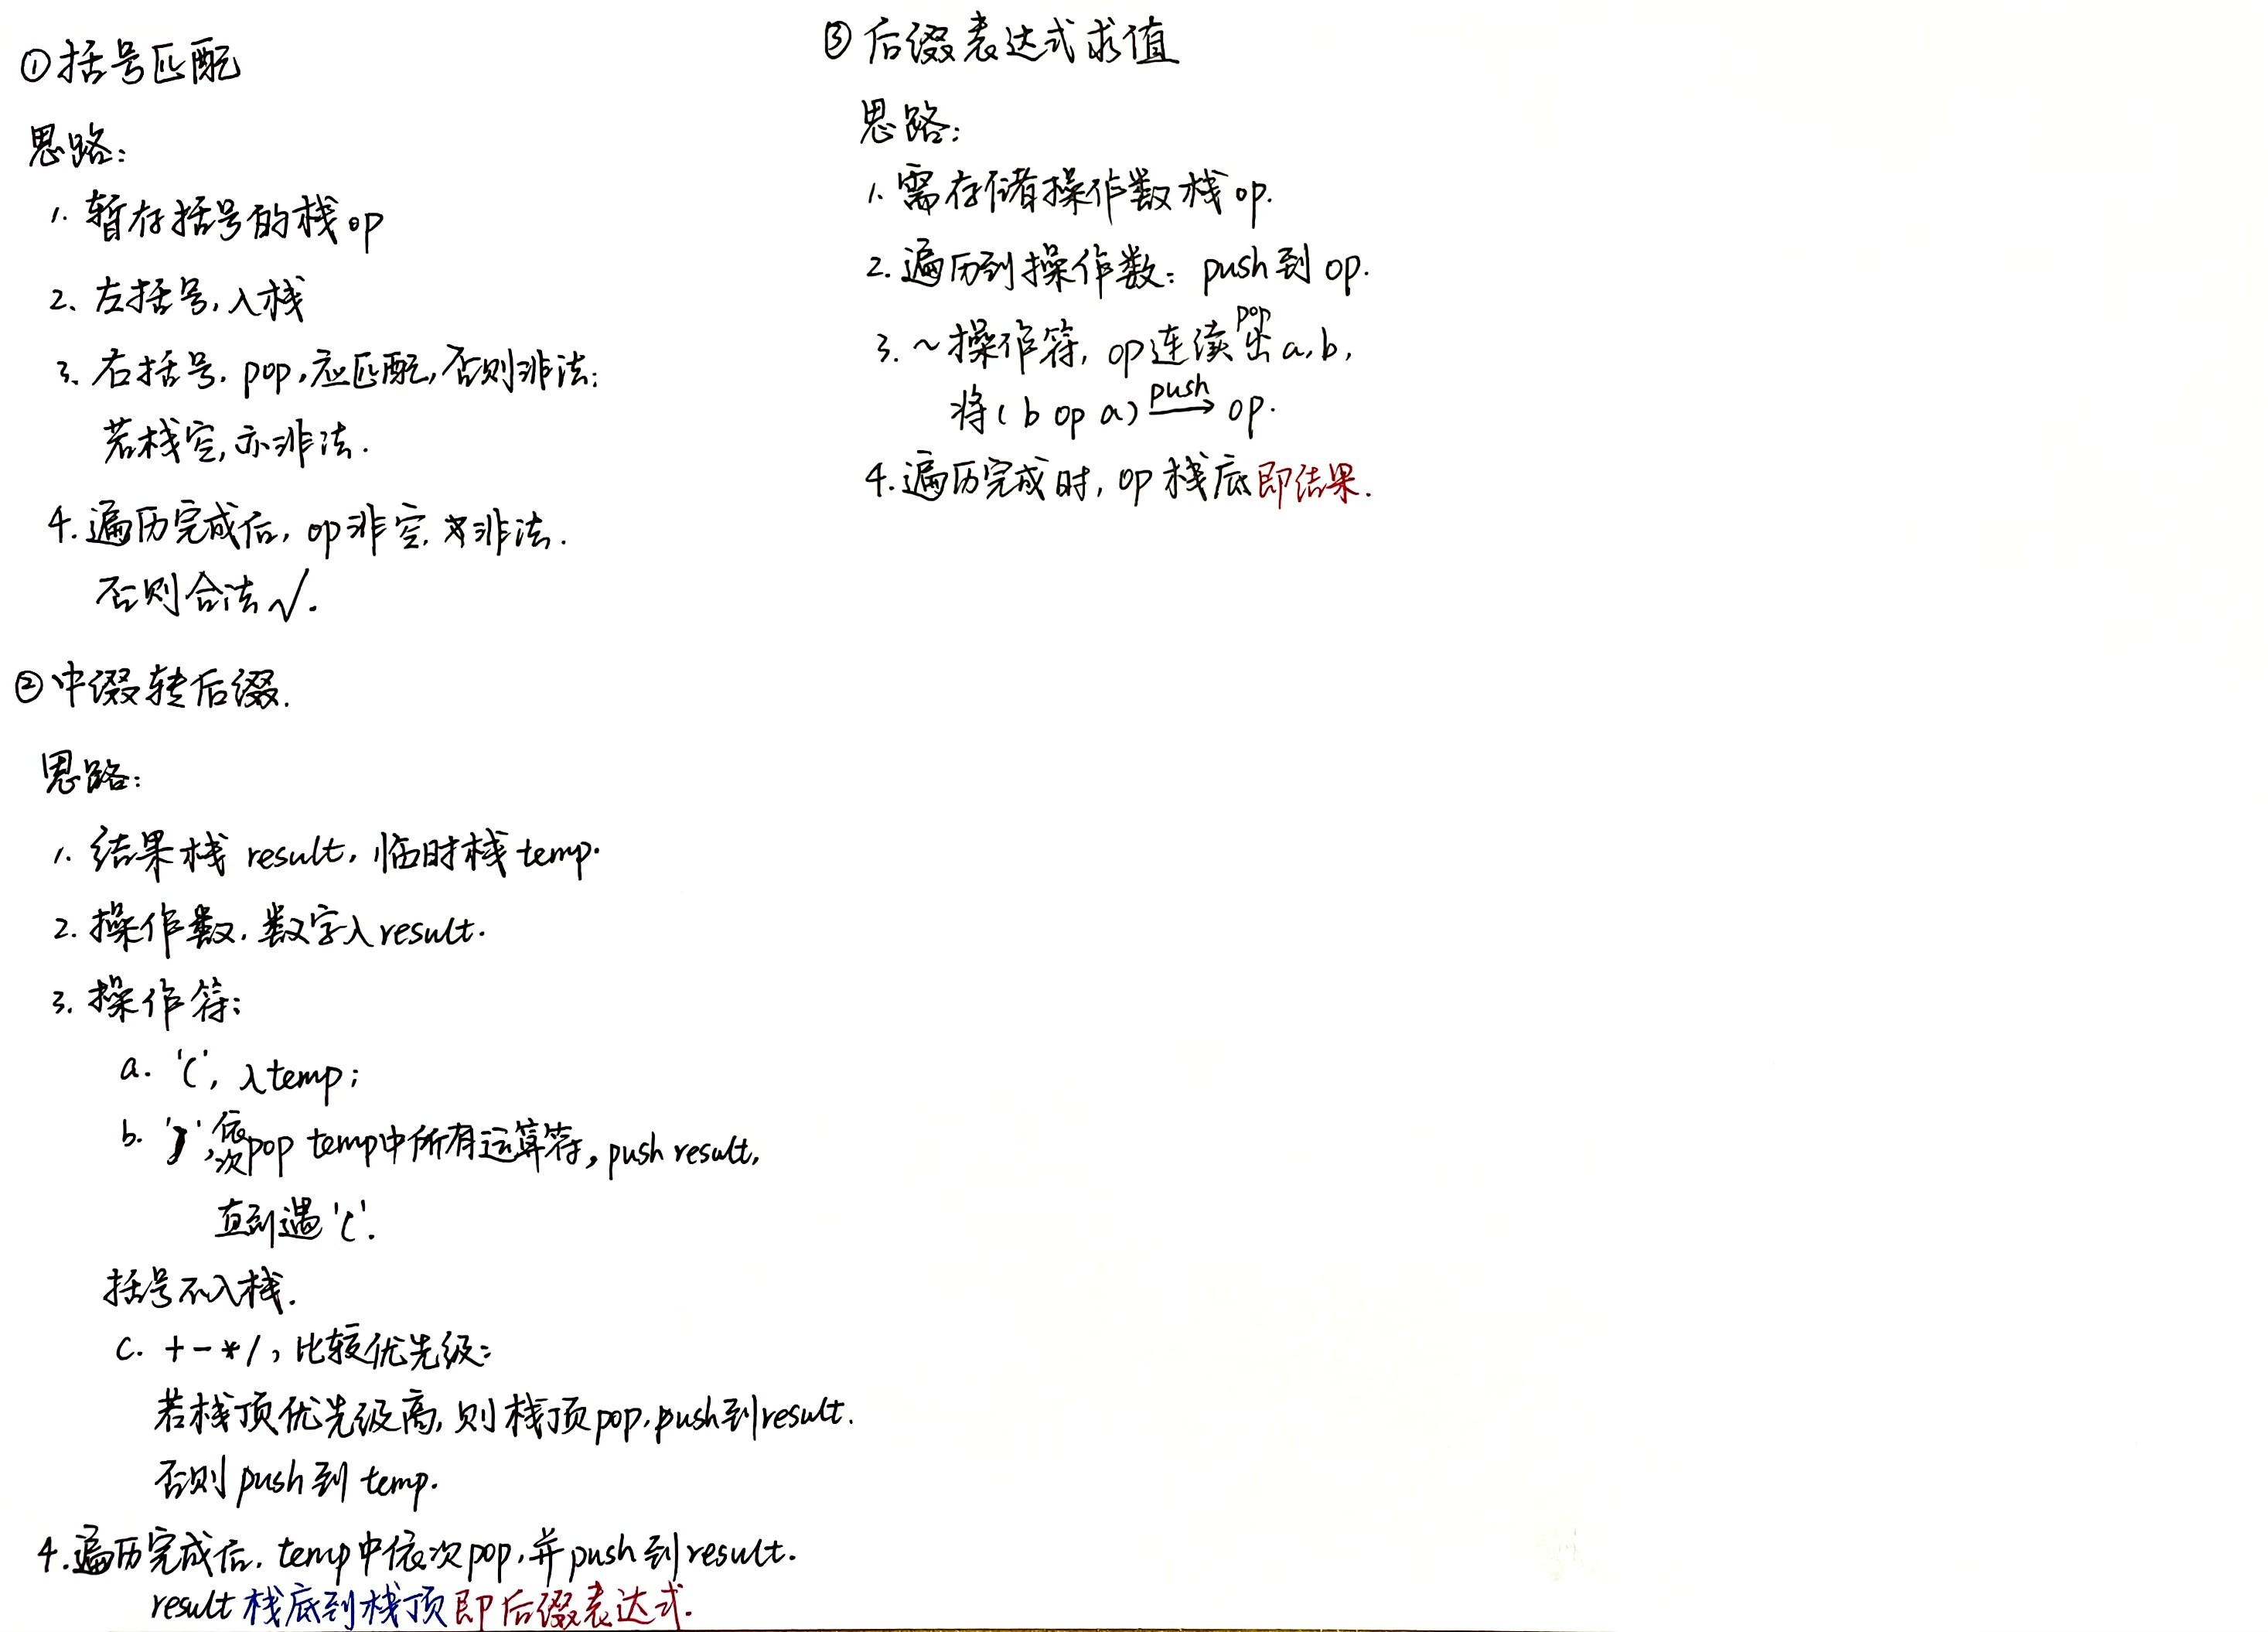 ①括号匹配
思路:
1. 暂存括号的栈op
2. 左括号,入栈
3. 右括号, pop,应匹配,否则非法;
若栈空,亦非法.
4. 遍历完成后, op非空, 非法.
否则合法√.
②中缀转后缀.
思路:
1. 结果栈 result, 临时栈 temp.
2. 操作数, 数字入result.
3. 操作符:
a. '(', 入temp;
b. ')',依次pop temp中所有运算符, push result,
直到遇'('.
括号不入栈.
c. + - * /, 比较优先级:
若栈顶优先级高, 则栈顶pop, push到result.
否则 push 到 temp.
4. 遍历完成后, temp中依次pop, 并push到result.
result 栈底到栈顶即后缀表达式.
③后缀表达式求值
思路:
1. 需存储操作数栈 op.
2. 遍历到操作数: push到 op.
3. ~操作符, op连续pop出a,b,
将( b op a) push→ op.
4. 遍历完成时, op 栈底即结果.